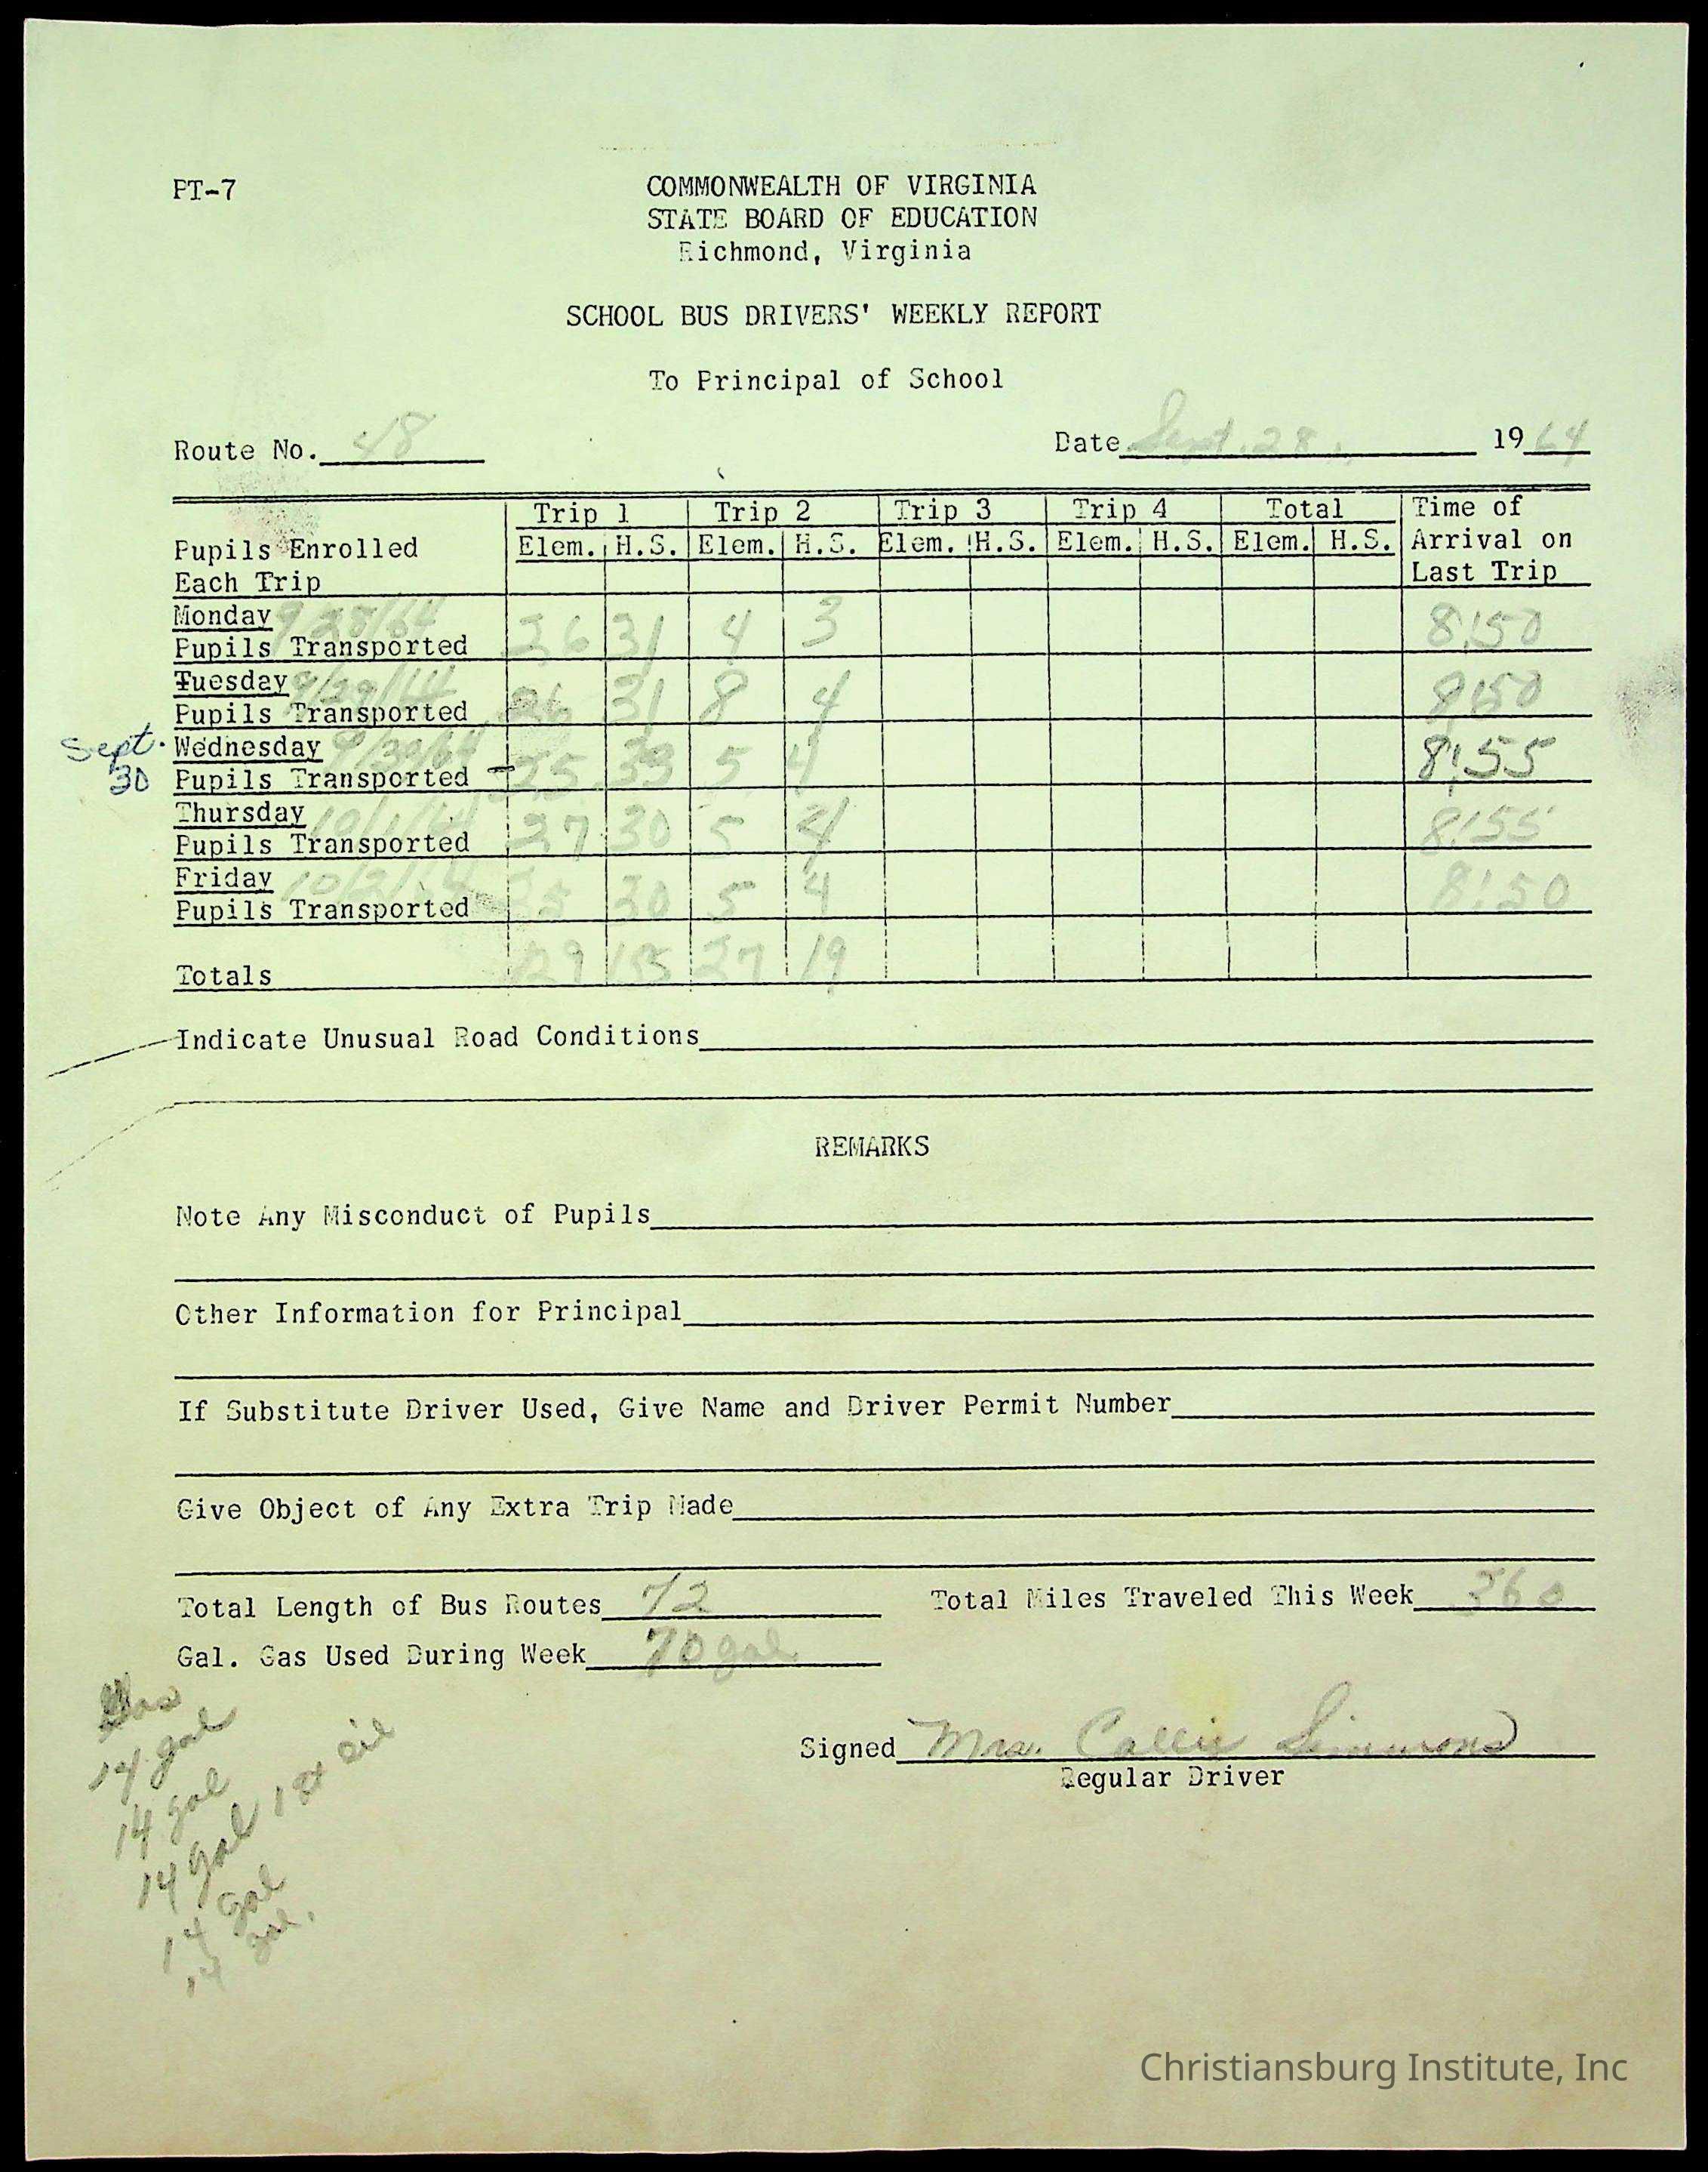 PT-7
COMMONWEALTH OF VIRGINIA
STATE BOARD OF EDUCATION
Richmond, Virginia
SCHOOL BUS DRIVERS' WEEKLY REPORT
To Principal of School
Route No. 48 Date Sept. 28, 1964
Trip 1 Trip 2 Trip 3 Trip 4 Total Time of
Pupils Enrolled Elem. H.S. Elem. H.S. Elem. H.S. Elem. H.S. Elem. H.S. Arrival on
Each Trip Last Trip
Monday 9/28/64
Pupils Transported 26 31 4 3 8:50
Tuesday 9/29/64
Pupils Transported 26 31 8 4 8:50
Sept. Wednesday 9/30/64
30 Pupils Transported 25 33 5 4 8:55
Thursday 10/1/64
Pupils Transported 27 30 5 4 8:55
Friday 10/2/64
Pupils Transported 25 30 5 4 8:50
Totals 129 155 27 19
Indicate Unusual Road Conditions
REMARKS
Note Any Misconduct of Pupils
Other Information for Principal
If Substitute Driver Used, Give Name and Driver Permit Number
Give Object of Any Extra Trip Made
Total Length of Bus Routes 72 Total Miles Traveled This Week 360
Gal. Gas Used During Week 70 gal
Gas
14 gal
14 gal
14 gal 1 qt oil
14 gal
14 gal.
Signed Mrs. Callie Simmons
Regular Driver
Christiansburg Institute, Inc